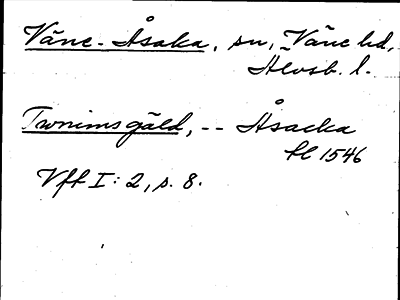 Väne-Åsaka, sn, Väne hd,
Älvsb. l.
Twnimsgäld, -- Åsacka
hl 1546
Vff I: 2, s. 8.